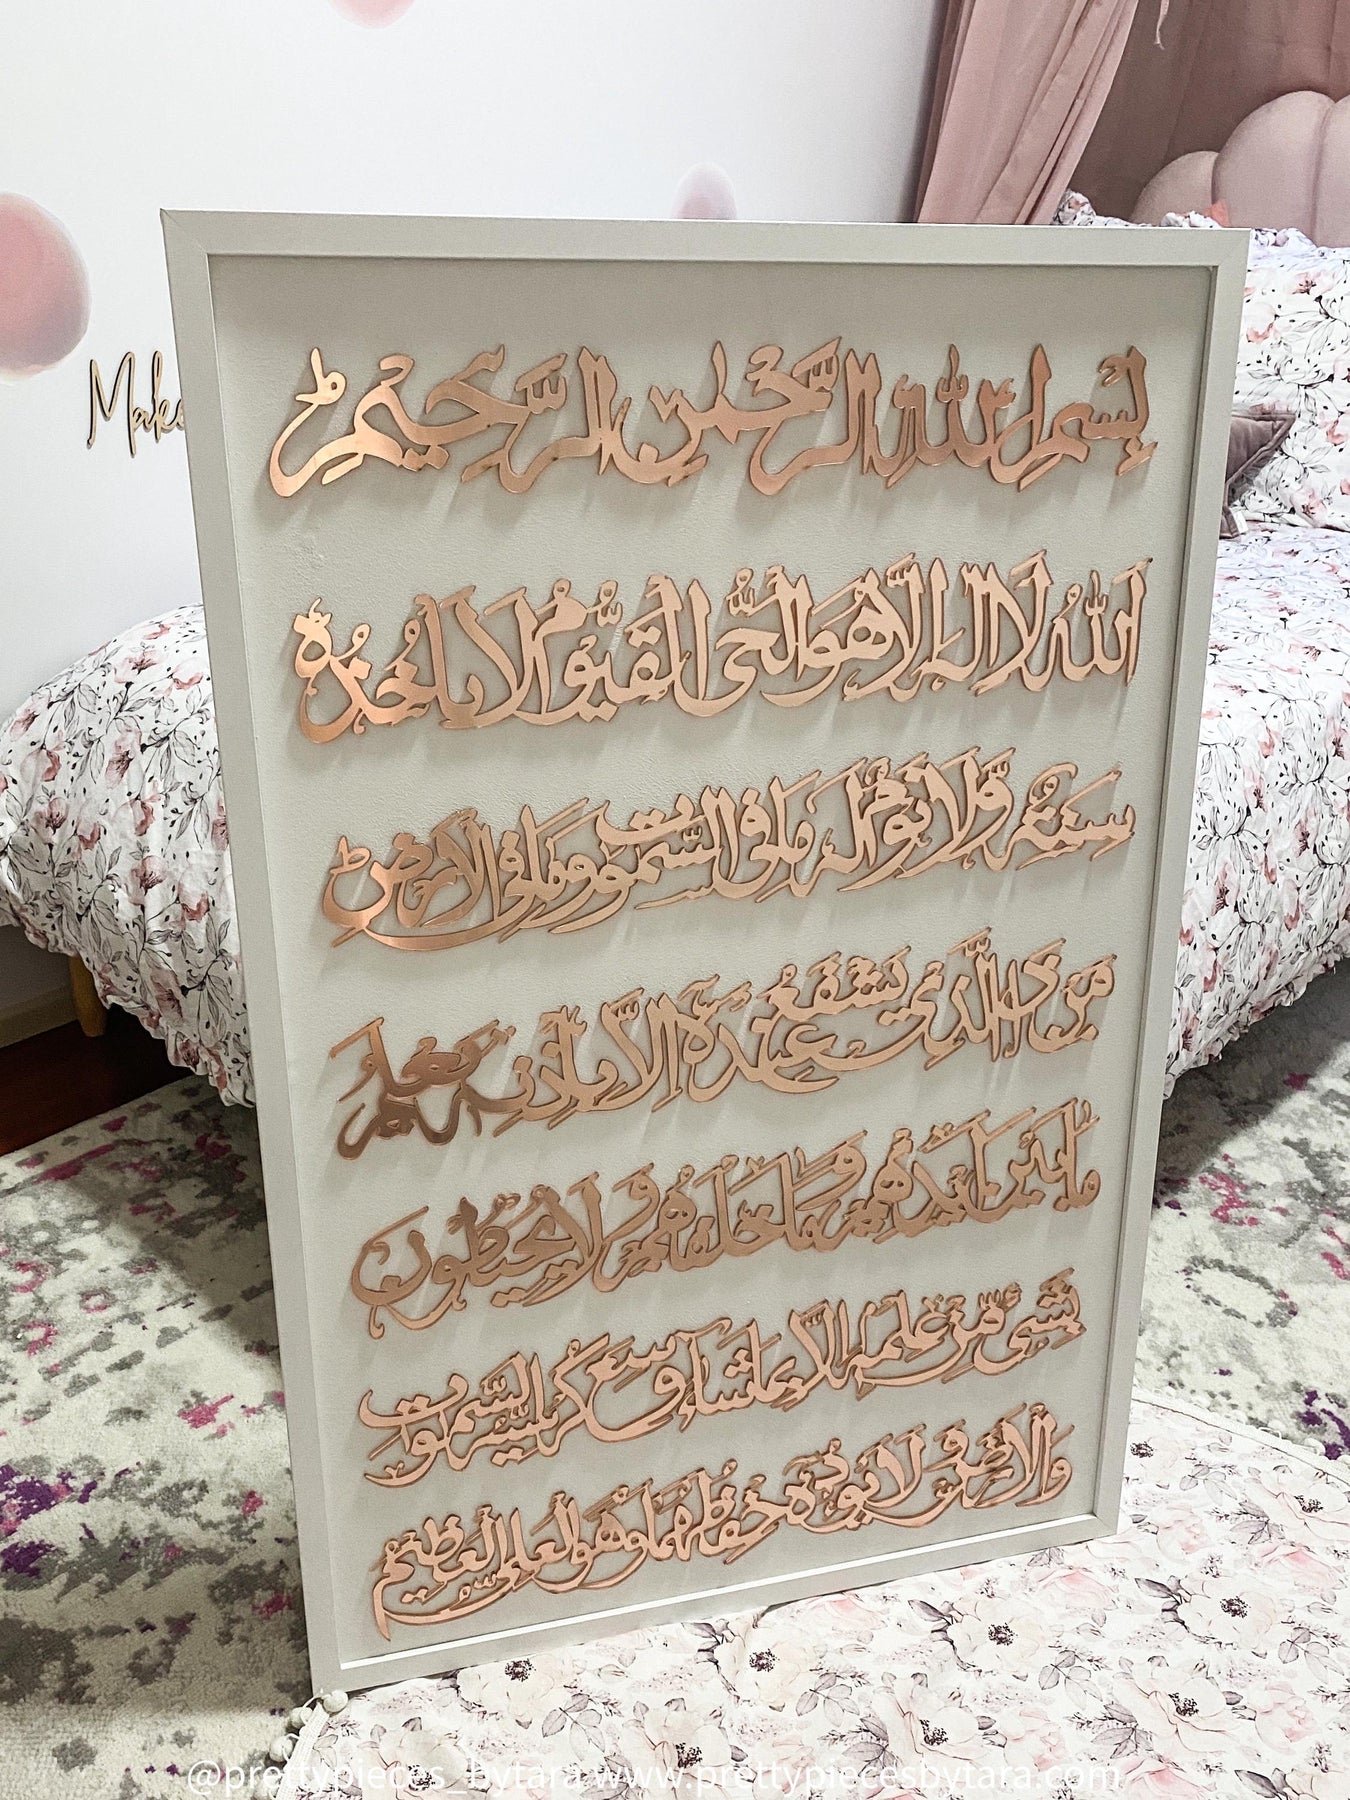 بِسْمِ اللهِ الرَّحْمٰنِ الرَّحِيْمِ
اَللهُ لَا اِلٰهَ اِلَّا هُوَ الْحَيُّ الْقَيُّوْمُ لَا تَاْخُذُهٗ
سِنَةٌ وَّلَا نَوْمٌ لَهٗ مَا فِي السَّمٰوٰتِ وَمَا فِي الْاَرْضِ
مَنْ ذَا الَّذِيْ يَشْفَعُ عِنْدَهٗٓ اِلَّا بِاِذْنِهٖ يَعْلَمُ
مَا بَيْنَ اَيْدِيْهِمْ وَمَا خَلْفَهُمْ وَلَا يُحِيْطُوْنَ
بِشَيْءٍ مِّنْ عِلْمِهٖٓ اِلَّا بِمَا شَآءَ وَسِعَ كُرْسِيُّهُ السَّمٰوَاتِ
وَالْاَرْضَ وَلَا يَئُوْدُهٗ حِفْظُهُمَا وَهُوَ الْعَلِيُّ الْعَظِيْمُ
@prettypieces_bytara www.prettypiecesbytara.com